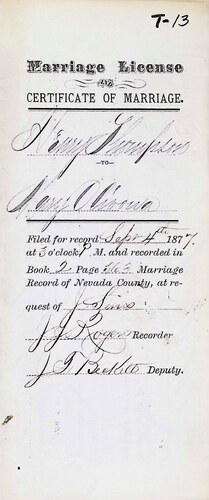 T-13
Marriage License
AND
CERTIFICATE OF MARRIAGE.
Henry Thompson
TO
Mary
Filed for record Sept 4th 1877.
at 3 o'clock P M. and recorded in
Book 2 Page Marriage
Record of Nevada County, at re-
quest of J. Sims
J. J. Rogers Recorder
J T Beckett Deputy.